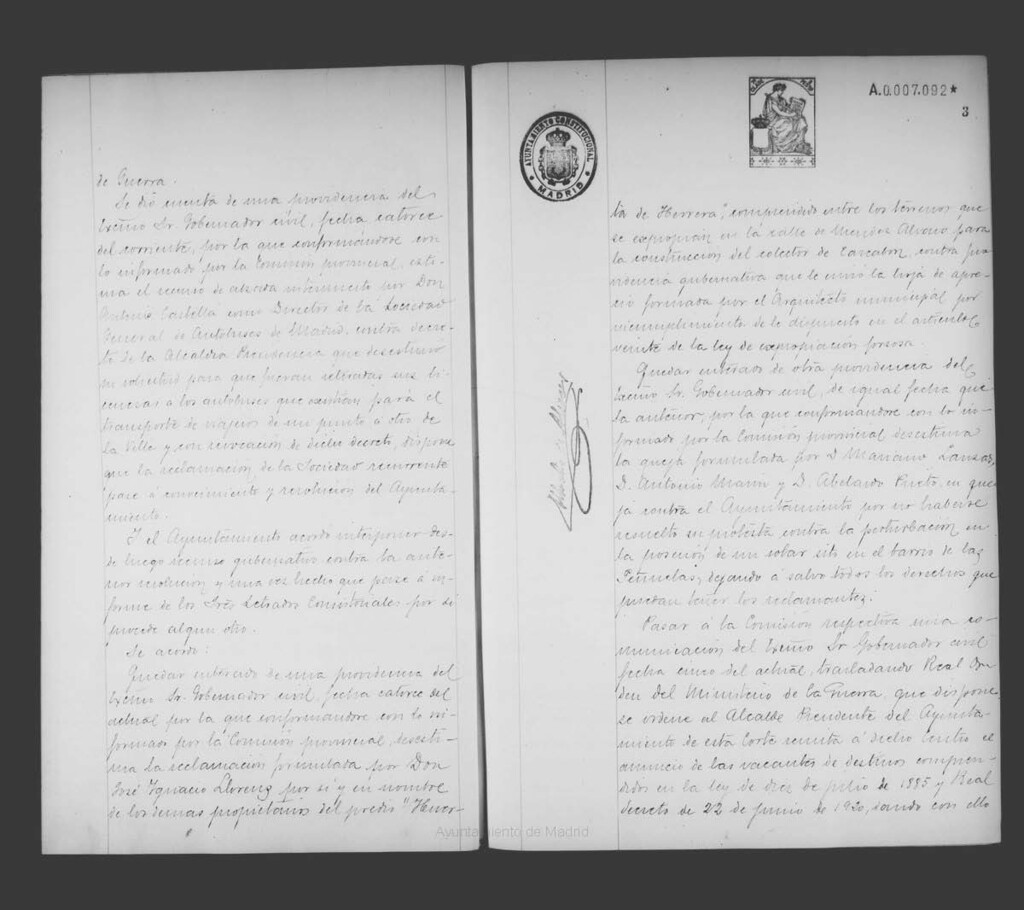 de Guerra.
Se dió cuenta de una providencia del
Excmo Sr. Gobernador civil, fecha catorce
del corriente, por la que conformándose con
lo informado por la Comisión provincial, esti-
ma el recurso de alzada interpuesto por Don
Antonio Castilla como Director de la Sociedad
General de Autobuses de Madrid, contra decre-
to de la Alcaldia Presidencia que desestimó
su solicitud para que fueran retiradas sus li-
cencias a los autobuses que existian para el
transporte de viajeros de un punto a otro de
la Villa y con revocación de dicho decreto, dispone
que la reclamación de la Sociedad recurrente
pase á conocimiento y resolución del Ayunta-
miento.
Y el Ayuntamiento acordó interponer des-
de luego recurso gubernativo contra la ante-
rior resolución y una vez hecho que pase á in-
forme de los Tres Letrados Consistoriales por si
procede algun otro.
Se acordó:
Quedar enterado de una providencia del
Excmo Sr. Gobernador civil, fecha catorce del
actual por la que conformándose con lo in-
formado por la Comisión provincial, desesti-
ma la reclamacion formulada por Don
José Ignacio Llorens por si y en nombre
de los demas propietarios del predio "Huer-
AYUNTAMIENTO CONSTITUCIONAL
MADRID
A.0.007.092*
3
ta de Herrera", comprendido entre los terrenos que
se expropian en la calle de Mendez Alvaro para
la construcción del colector de contra pro-
videncia gubernativa que le envió la hoja de apre-
cio formada por el Arquitecto municipal por
incumplimiento de lo dispuesto en el artículo
veinte de la ley de expropiación forzosa.
Quedar enterado de otra providencia del
Excmo Sr. Gobernador civil, de igual fecha que
la anterior, por la que conformandose con lo in-
formado por la Comisión provincial desestima
la queja formulada por D. Mariano
D. Antonio Marin y D. Abelardo Prieto, en que-
ja contra el Ayuntamiento por no haberse
resuelto su protesta contra la perturbación en
la posesión de un solar sito en el barrio de las
Peñuelas, dejando á salvo todos los derechos que
puedan tener los reclamantes.
Pasar á la Comisión respectiva una co-
municación del Excmo Sr Gobernador civil
fecha cinco del actual, trasladando Real Or-
den del Ministerio de la Guerra, que dispone
se ordene al Alcalde Presidente del Ayunta-
miento de esta Corte remita á dicho Centro el
anuncio de las vacantes de destinos compren-
didos en la ley de diez de julio de 1885 y Real
decreto de 22 de junio de 1920, dando con ello
Ayuntamiento de Madrid